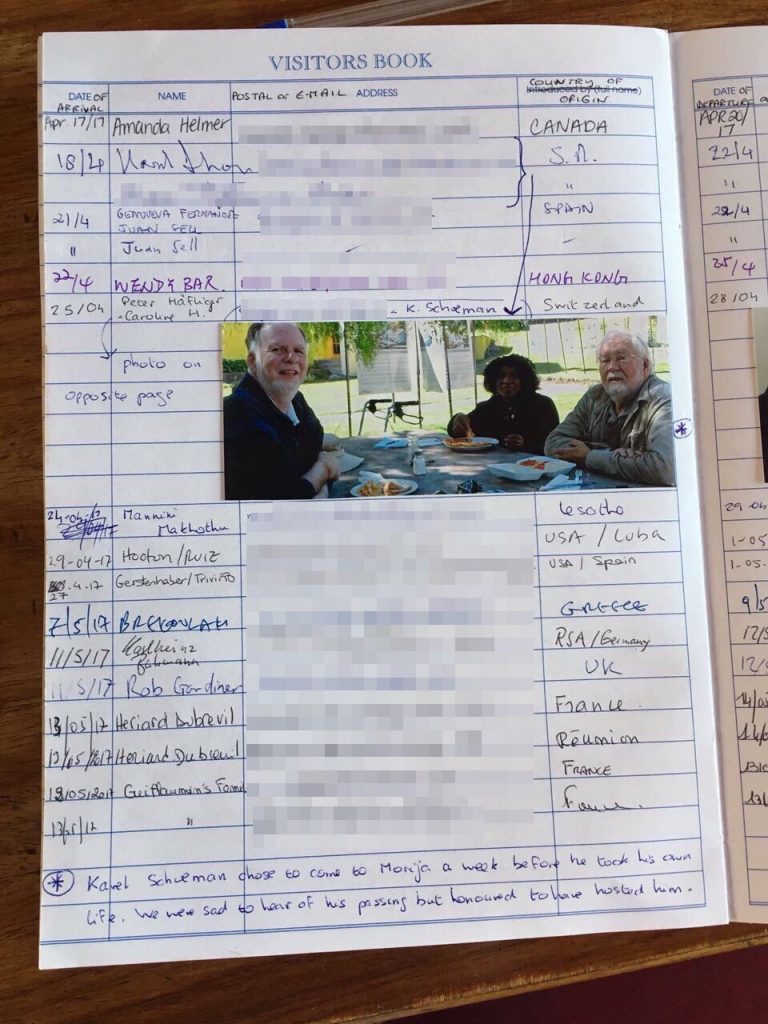 VISITORS BOOK
DATE OF ARRIVAL NAME POSTAL or E-MAIL ADDRESS COUNTRY OF Introduced by (full name) ORIGIN DATE OF DEPARTURE
Apr 17/17 Amanda Helmer CANADA APR 20/17
18/4 S.A. 22/4
" "
21/4 GENOVEVA FERNANDE SPAIN 22/4
JUAN SELL
" Juan Sell "
22/4 WENDY BAR. HONG KONG 25/4
25/04 Peter Häfliger - K. Schoeman Switzerland 28/04
+ Caroline H.
photo on
opposite page
*
24-04-17 Mannini Lesotho 29-04
Makhothu
29-04-17 Hooton/RUIZ USA / Cuba 1-05
27-4-17 Gerstenhaber/Triviño USA / Spain 1-05-
7/5/17 GREECE 9/5
11/5/17 Karlheinz RSA/Germany 12/5
11/5/17 Rob Gardiner UK 12/5
13/05/17 Heriard Dubreuil France 14/05
13/05/2017 Heriard Dubreuil Réunion
13/05/2017 Guillaumin's Famil FRANCE
13/5/17 " France
* Karel Schoeman chose to come to Morija a week before he took his own
life. We were sad to hear of his passing but honoured to have hosted him.